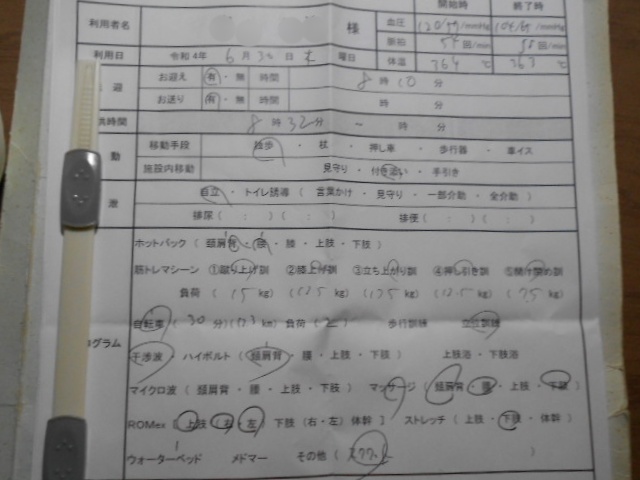 開始時 終了時
利用者名 様 血圧 120/ mmHg 104/ mmHg
脈拍 回/min 回/min
利用日 令和4年 6月30日 木 曜日 体温 36.4℃ 36.3℃
迎 お迎え 有・無 時間 8時10分
お送り 有・無 時間 時 分
供時間 8時32分 ～ 時 分
動 移動手段 独歩 ・ 杖 ・ 押し車 ・ 歩行器 ・ 車イス
施設内移動 見守り ・ 付き添い ・ 手引き
泄 自立 ・ トイレ誘導 ( 言葉かけ ・ 見守り ・ 一部介助 ・ 全介助 )
排尿 ( : ) ( : ) 排便 ( : ) ( : )
ホットパック ( 頚肩背 ・ 腰 ・ 膝 ・ 上肢 ・ 下肢 )
筋トレマシーン ①蹴り上げ訓 ②膝上げ訓 ③立ち上がり訓 ④押し引き訓 ⑤開け閉め訓
負荷 ( 15 kg) (12.5 kg) ( 17.5 kg) (12.5 kg) ( 7.5 kg)
自転車 ( 30 分) ( km) 負荷 ( 2 ) 歩行訓練 立位訓練
ログラム 干渉波 ・ ハイボルト ( 頚肩背 ・ 腰 ・ 上肢 ・ 下肢 ) 上肢浴 ・ 下肢浴
マイクロ波 ( 頚肩背 ・ 腰 ・ 上肢 ・ 下肢 ) マッサージ ( 頚肩背 ・ 腰 ・ 上肢 ・ 下肢 )
ROMex 【 上肢 (右・左) 下肢 (右・左) 体幹 】 ストレッチ ( 上肢 ・ 下肢 ・ 体幹 )
ウォーターベッド メドマー その他 ( )